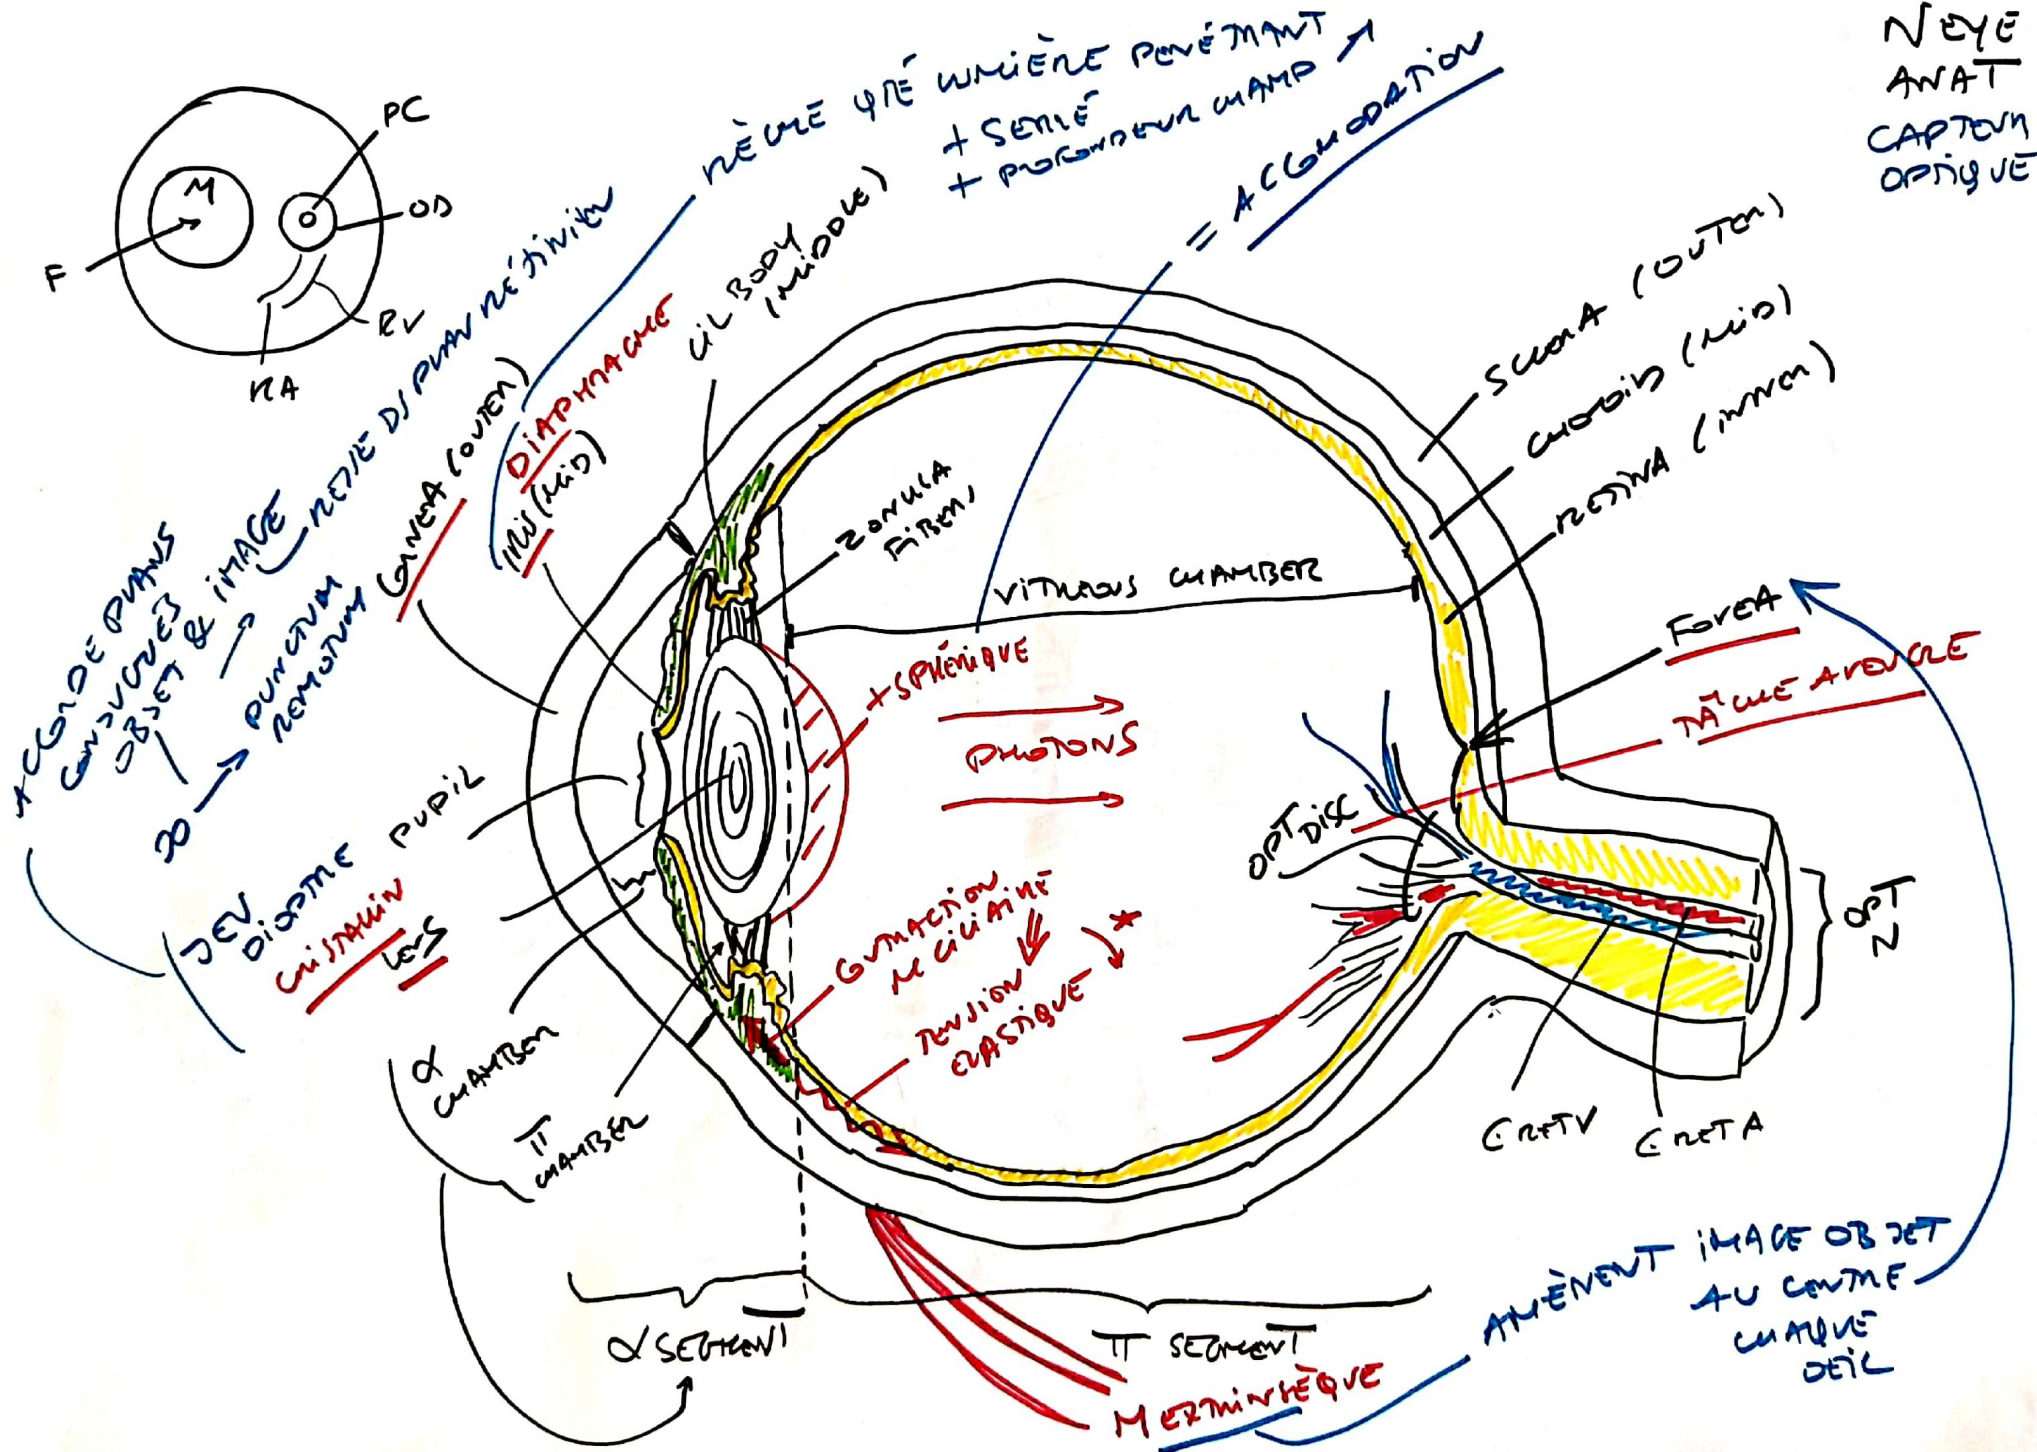 N EYE
ANAT
CAPTEUR
OPTIQUE
PC
M
OD
F
RV
RA
RÈGLE QTÉ LUMIÈRE PENÉTRANT
+ SERRÉ
+ PROFONDEUR CHAMP ↗
= ACCOMODATION
ACCORDE PLANS
CONJUGUÉS
OBJET & IMAGE
→ RESTE DS PLAN RÉTINIEN
∞ → PUNCTUM
REMOTUM
CORNEA (OUTER)
DIAPHRAGME
IRIS (MID)
CIL BODY
(MIDDLE)
ZONULA
FIBERS
VITREOUS CHAMBER
SCLERA (OUTER)
CHOROID (MID)
RETINA (INNER)
FOVEA
TÂCHE AVEUGLE
+ SPHÉRIQUE
PHOTONS
OPT DISC
PUPIL
JEU
DIOPTRE
CRISTALLIN
LENS
CONTRACTION
M CILIAIRE
TENSION
ELASTIQUE
*
OPT
N
α
CHAMBER
π
CHAMBER
C RET V
C RET A
α SEGMENT
π SEGMENT
M EXTRINSÈQUE
AMÈNENT IMAGE OBJET
AU CENTRE
CHAQUE
OEIL